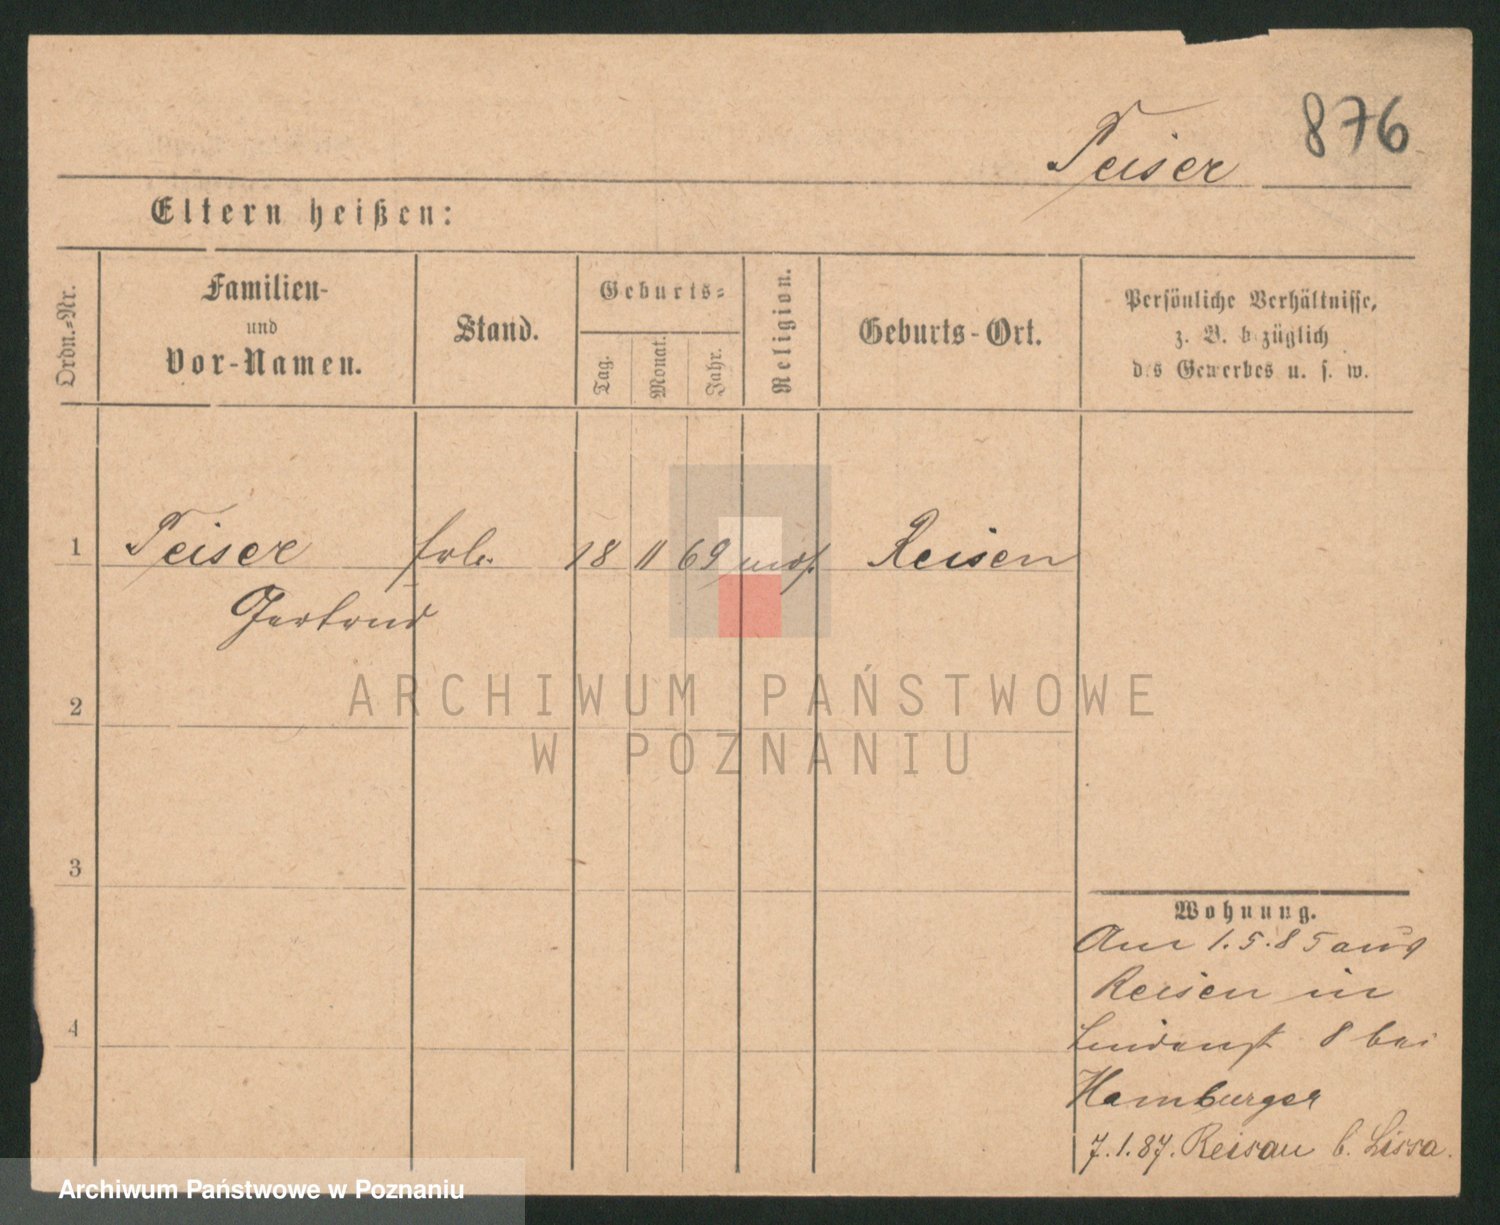 876
Teiser
Eltern heißen:
Ordn.-Nr.
Familien-
und
Vor-Namen.
Stand.
Geburts-
Tag.
Monat.
Jahr.
Religion.
Geburts-Ort.
Persönliche Verhältnisse,
z. B. bezüglich
des Gewerbes u. s. w.
1 Teiser frl. 18 11 69 mos. Reisen
Gertrud
2
3
4
Wohnung.
Am 1.5.85 aus
Reisen in
Lindenst 8 bei
Hamburger
7.1.87. Reisen b. Lissa.
ARCHIWUM PAŃSTWOWE
W POZNANIU
Archiwum Państwowe w Poznaniu